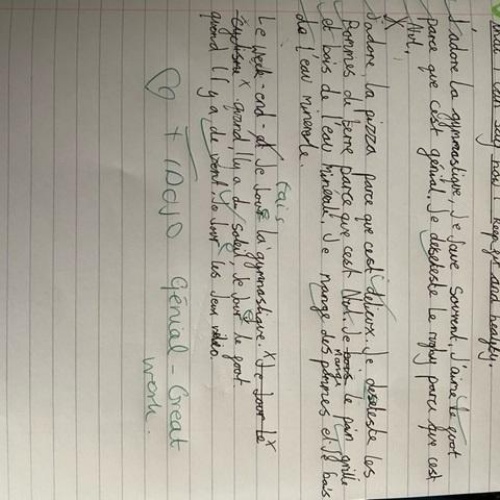 that I can say how I keep fit and healthy
J'adore la gymnastique, Je faire souvent, J'aime le goot
parce que c'est génial. Je deseteste le rugby parce que c'est
Nul.
X
J'adore la pizza parce que c'est delieux. Je deseteste les
Pommes de terre parce que c'est Nul. Je mange le pain grille
et bois de l'eau minerale. Je mange des pommes et Je bois
de l'eau minerale.
fais
Le week-end Je Joue la gymnastique. Je Joue le
quand il y a du soleil, Je Joue le goot
quand il y a de vent. Je Joue les Jeux video.
+ 10DoJo Génial - Great
work.